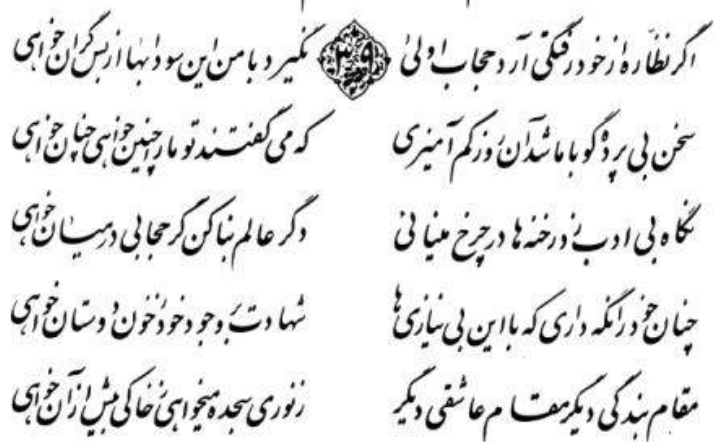 اگر نظاره از خود رفتگی آرد حجاب اولیٰ نگیرد با من این سودا بها از بس گران خواهی
سخن بی پرده گو با ما شد آن روز کم آمیزی که می گفتند تو ما را چنین خواهی چنان خواهی
نگاه بی ادب زد رخنه ها در چرخ مینائی دگر عالم بنا کن گر حجابی درمیان خواهی
چنان خود را نگه داری که با این بی نیازی ها شهادت بر وجود خود ز خون دوستان خواهی
مقام بندگی دیگر مقام عاشقی دیگر ز نوری سجده میخواهی ز خاکی بیش از آن خواهی